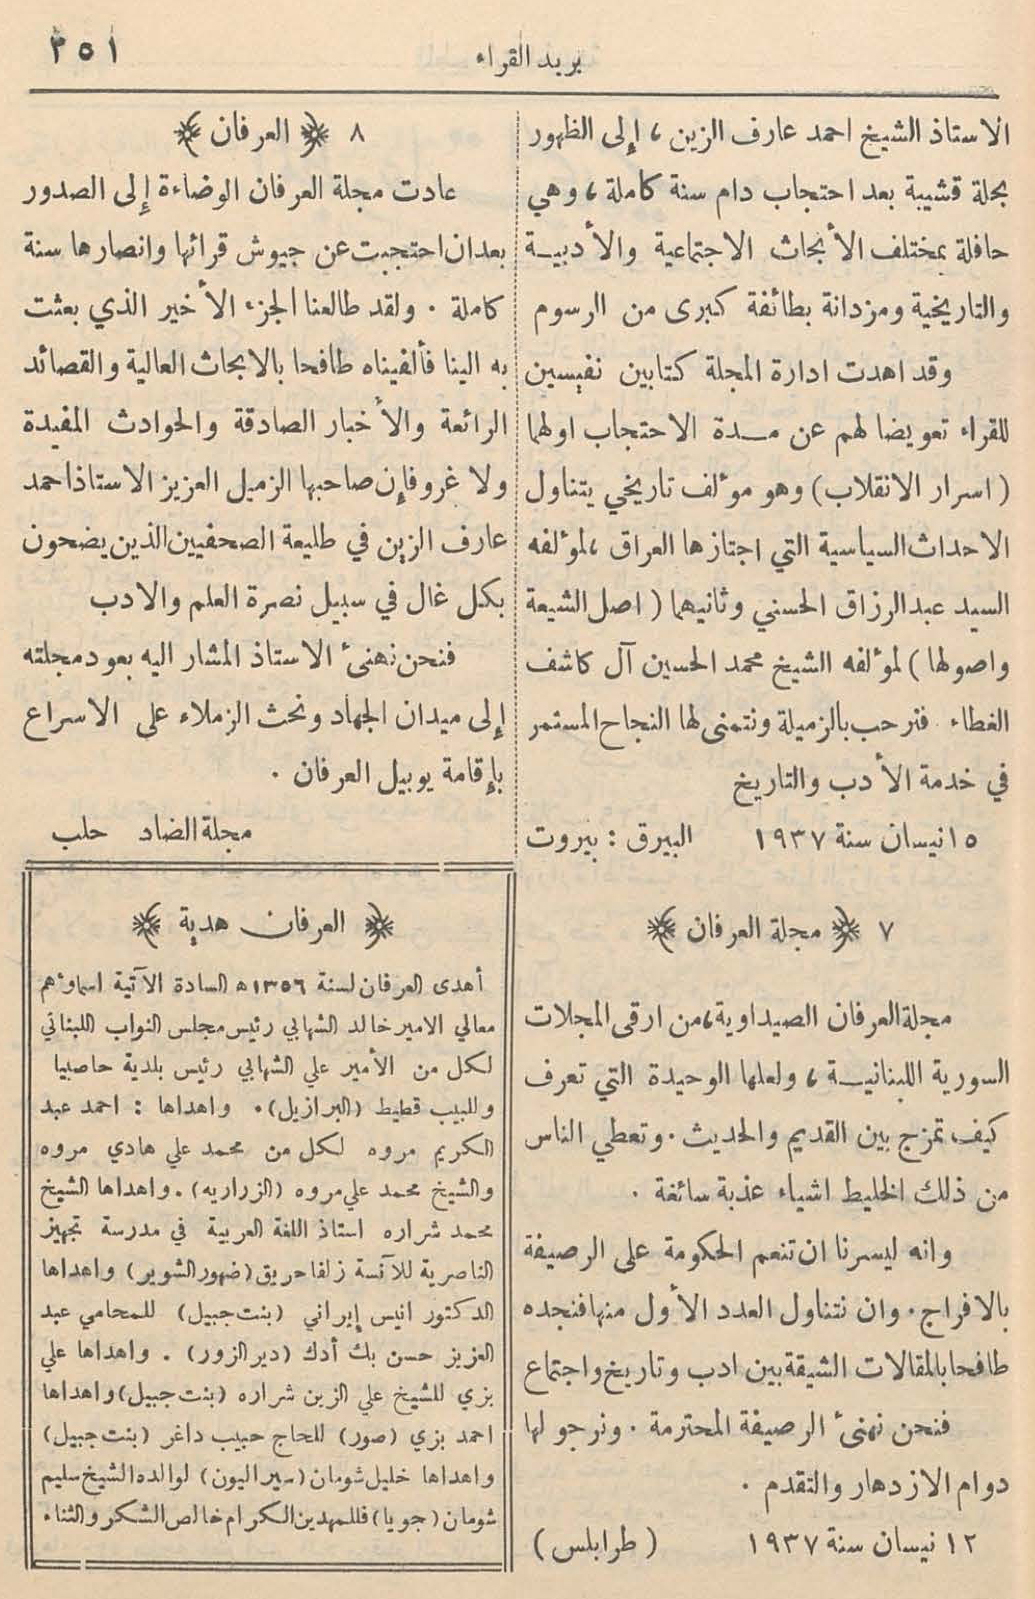 بريد القراء
٣٥١
الاستاذ الشيخ احمد عارف الزين ، إلى الظهور
بحلة قشيبة بعد احتجاب دام سنة كاملة ، وهي
حافلة بمختلف الأبحاث الاجتماعية والأدبيـة
والتاريخية ومزدانة بطائفة كبرى من الرسوم
وقد اهدت ادارة المجلة كتابين نفيسين
للقراء تعويضا لهم عن مـدة الاحتجاب اولهما
( اسرار الانقلاب ) وهو مؤلف تاريخي يتناول
الاحداث السياسية التي اجتازها العراق ، لمؤلفه
السيد عبدالرزاق الحسني وثانيهما ( اصل الشيعة
واصولها ) لمؤلفه الشيخ محمد الحسين آل كاشف
الغطاء . فنرحب بالزميلة ونتمنى لها النجاح المستمر
في خدمة الأدب والتاريخ
١٥ نيسان سنة ١٩٣٧ البيرق : بيروت
٧ ﴿ مجلة العرفان ﴾
مجلة العرفان الصيداوية ، من ارقى المجلات
السورية اللبنانيـة ، ولعلها الوحيدة التي تعرف
كيف تمزج بين القديم والحديث . وتعطي الناس
من ذلك الخليط اشياء عذبة سائغة .
وانه ليسرنا ان تنعم الحكومة على الرصيفة
بالافراج . وان نتناول العدد الأول منها فنجده
طافحا بالمقالات الشيقة بين ادب وتاريخ واجتماع
فنحن نهنئ الرصيفة المحترمة . ونرجو لها
دوام الازدهار والتقدم .
١٢ نيسان سنة ١٩٣٧ ( طرابلس )
٨ ﴿ العرفان ﴾
عادت مجلة العرفان الوضاءة إلى الصدور
بعدان احتجبت عن جيوش قرائها وانصارها سنة
كاملة . ولقد طالعنا الجزء الأخير الذي بعثت
به الينا فألفيناه طافحا بالابحاث العالية والقصائد
الرائعة والأخبار الصادقة والحوادث المفيدة
ولا غروفإن صاحبها الزميل العزيز الاستاذ احمد
عارف الزين في طليعة الصحفيين الذين يضحون
بكل غال في سبيل نصرة العلم والادب
فنحن نهنئ الاستاذ المشار اليه بعود مجلته
إلى ميدان الجهاد ونحث الزملاء على الاسراع
بإقامة يوبيل العرفان .
مجلة الضاد حلب
﴿ العرفان هدية ﴾
أهدى العرفان لسنة ١٣٥٦ه السادة الآتية اسماؤهم
معالي الامير خالد الشهابي رئيس مجلس النواب اللبناني
لكل من الأمير علي الشهابي رئيس بلدية حاصبيا
وللبيب قطيط (البرازيل) . واهداها : احمد عبد
الكريم مروه لكل من محمد علي هادي مروه
والشيخ محمد علي مروه (الزراريه) . واهداها الشيخ
محمد شراره استاذ اللغة العربية في مدرسة تجهيز
الناصرية للآنسة زلفا حريق (ضهور الشوير) واهداها
الدكتور انيس إيراني (بنت جبيل) للمحامي عبد
العزيز حسن بك أدك (دير الزور) . واهداها علي
بزي للشيخ علي الزين شراره (بنت جبيل) واهداها
احمد بزي (صور) للحاج حبيب داغر (بنت جبيل)
واهداها خليل شومان (سيراليون) لوالده الشيخ سليم
شومان (جويا) فللمهدين الكرام خالص الشكر والثناء